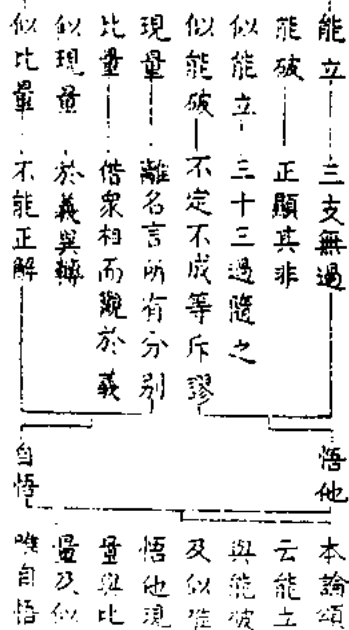 能立 三支無過
能破 正顯其非
似能立 三十三過隨之
似能破 不定不成等斥謬
現量 離名言所有分别
比量 借衆相而觀於義
似現量 於義異轉
似比量 不能正解
悟他
自悟
本論頌
云能立
與能破
及似唯
悟他現
量與比
量及似
唯自悟